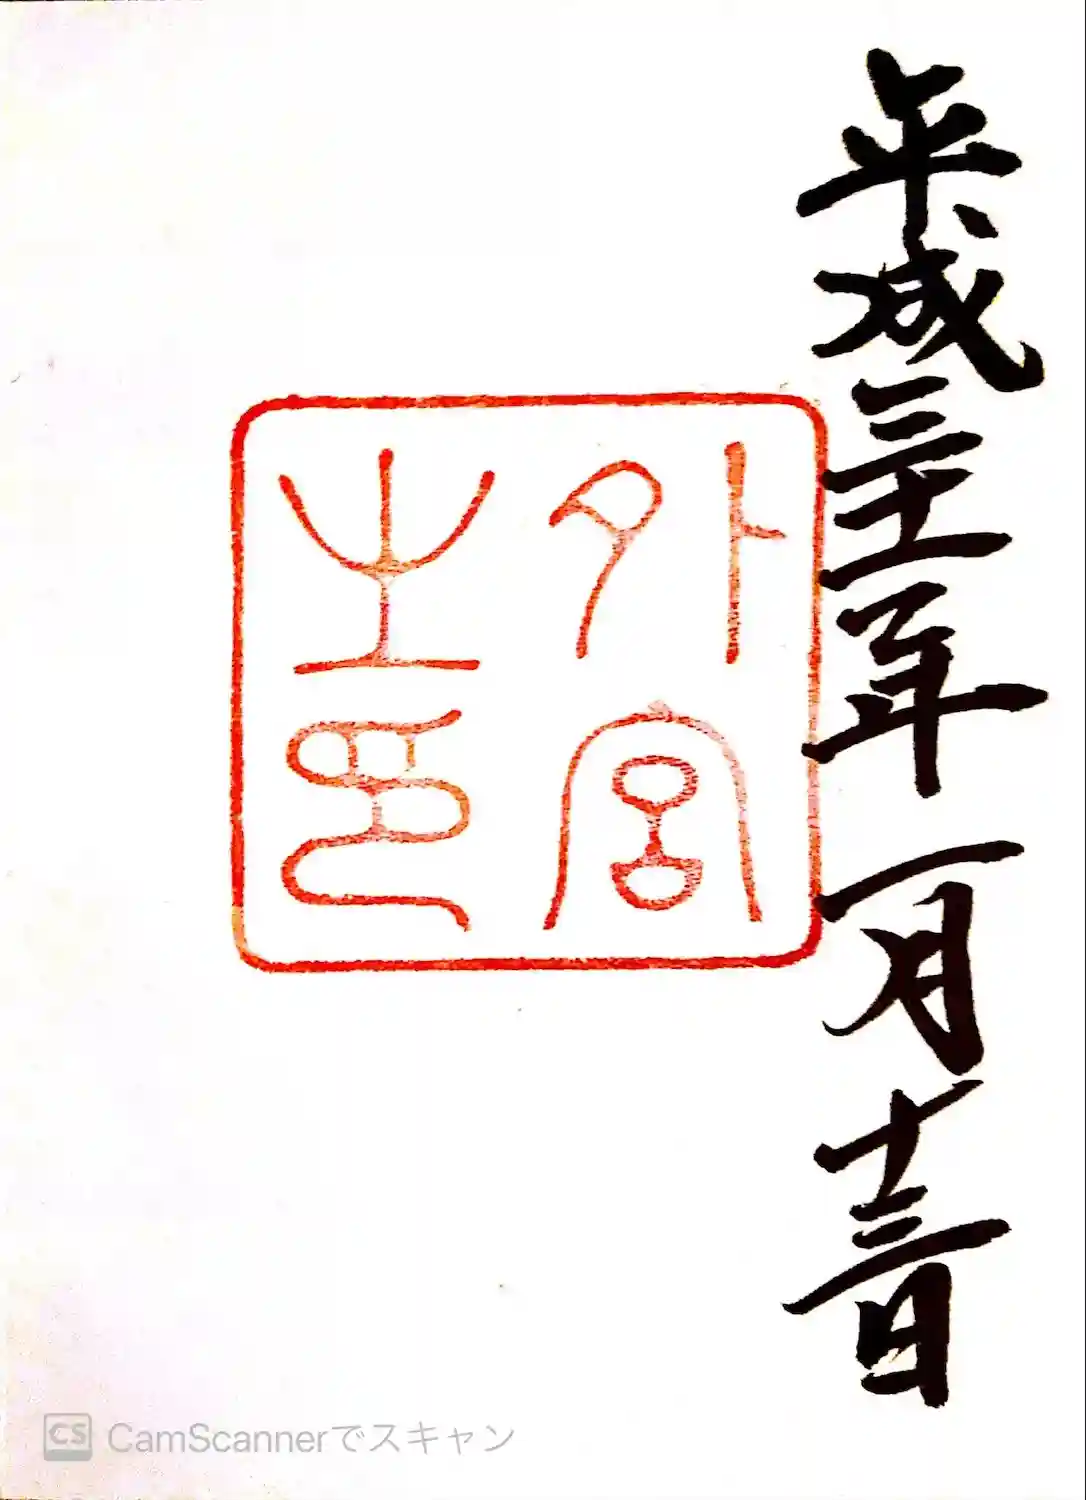 平成三十一年一月十三日
外宮
之印
CS CamScannerでスキャン